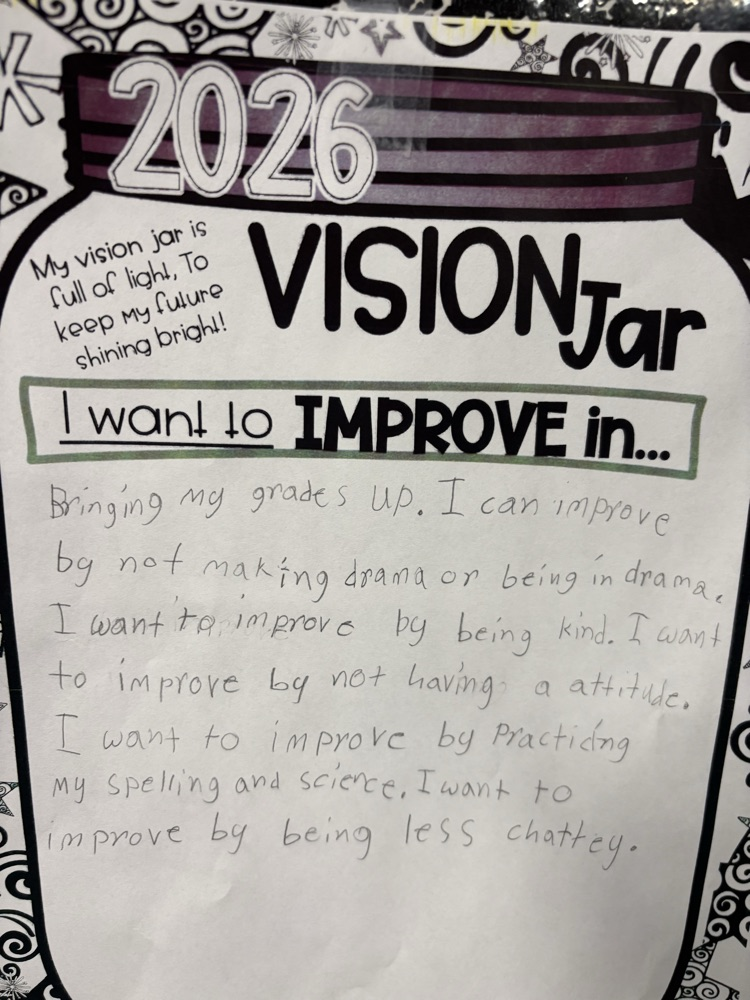 2026
My vision jar is
full of light, To
keep my future
shining bright!
VISION
Jar
I want to IMPROVE in...
Bringing my grades up. I can improve
by not making drama or being in drama.
I want to improve by being kind. I want
to improve by not having a attitude.
I want to improve by Practicing
my spelling and science. I want to
improve by being less chattey.